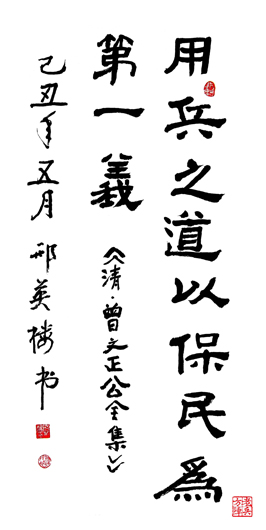 用兵之道以保民為
第一義
《清·曾文正公全集》
己丑年五月邢英楼书